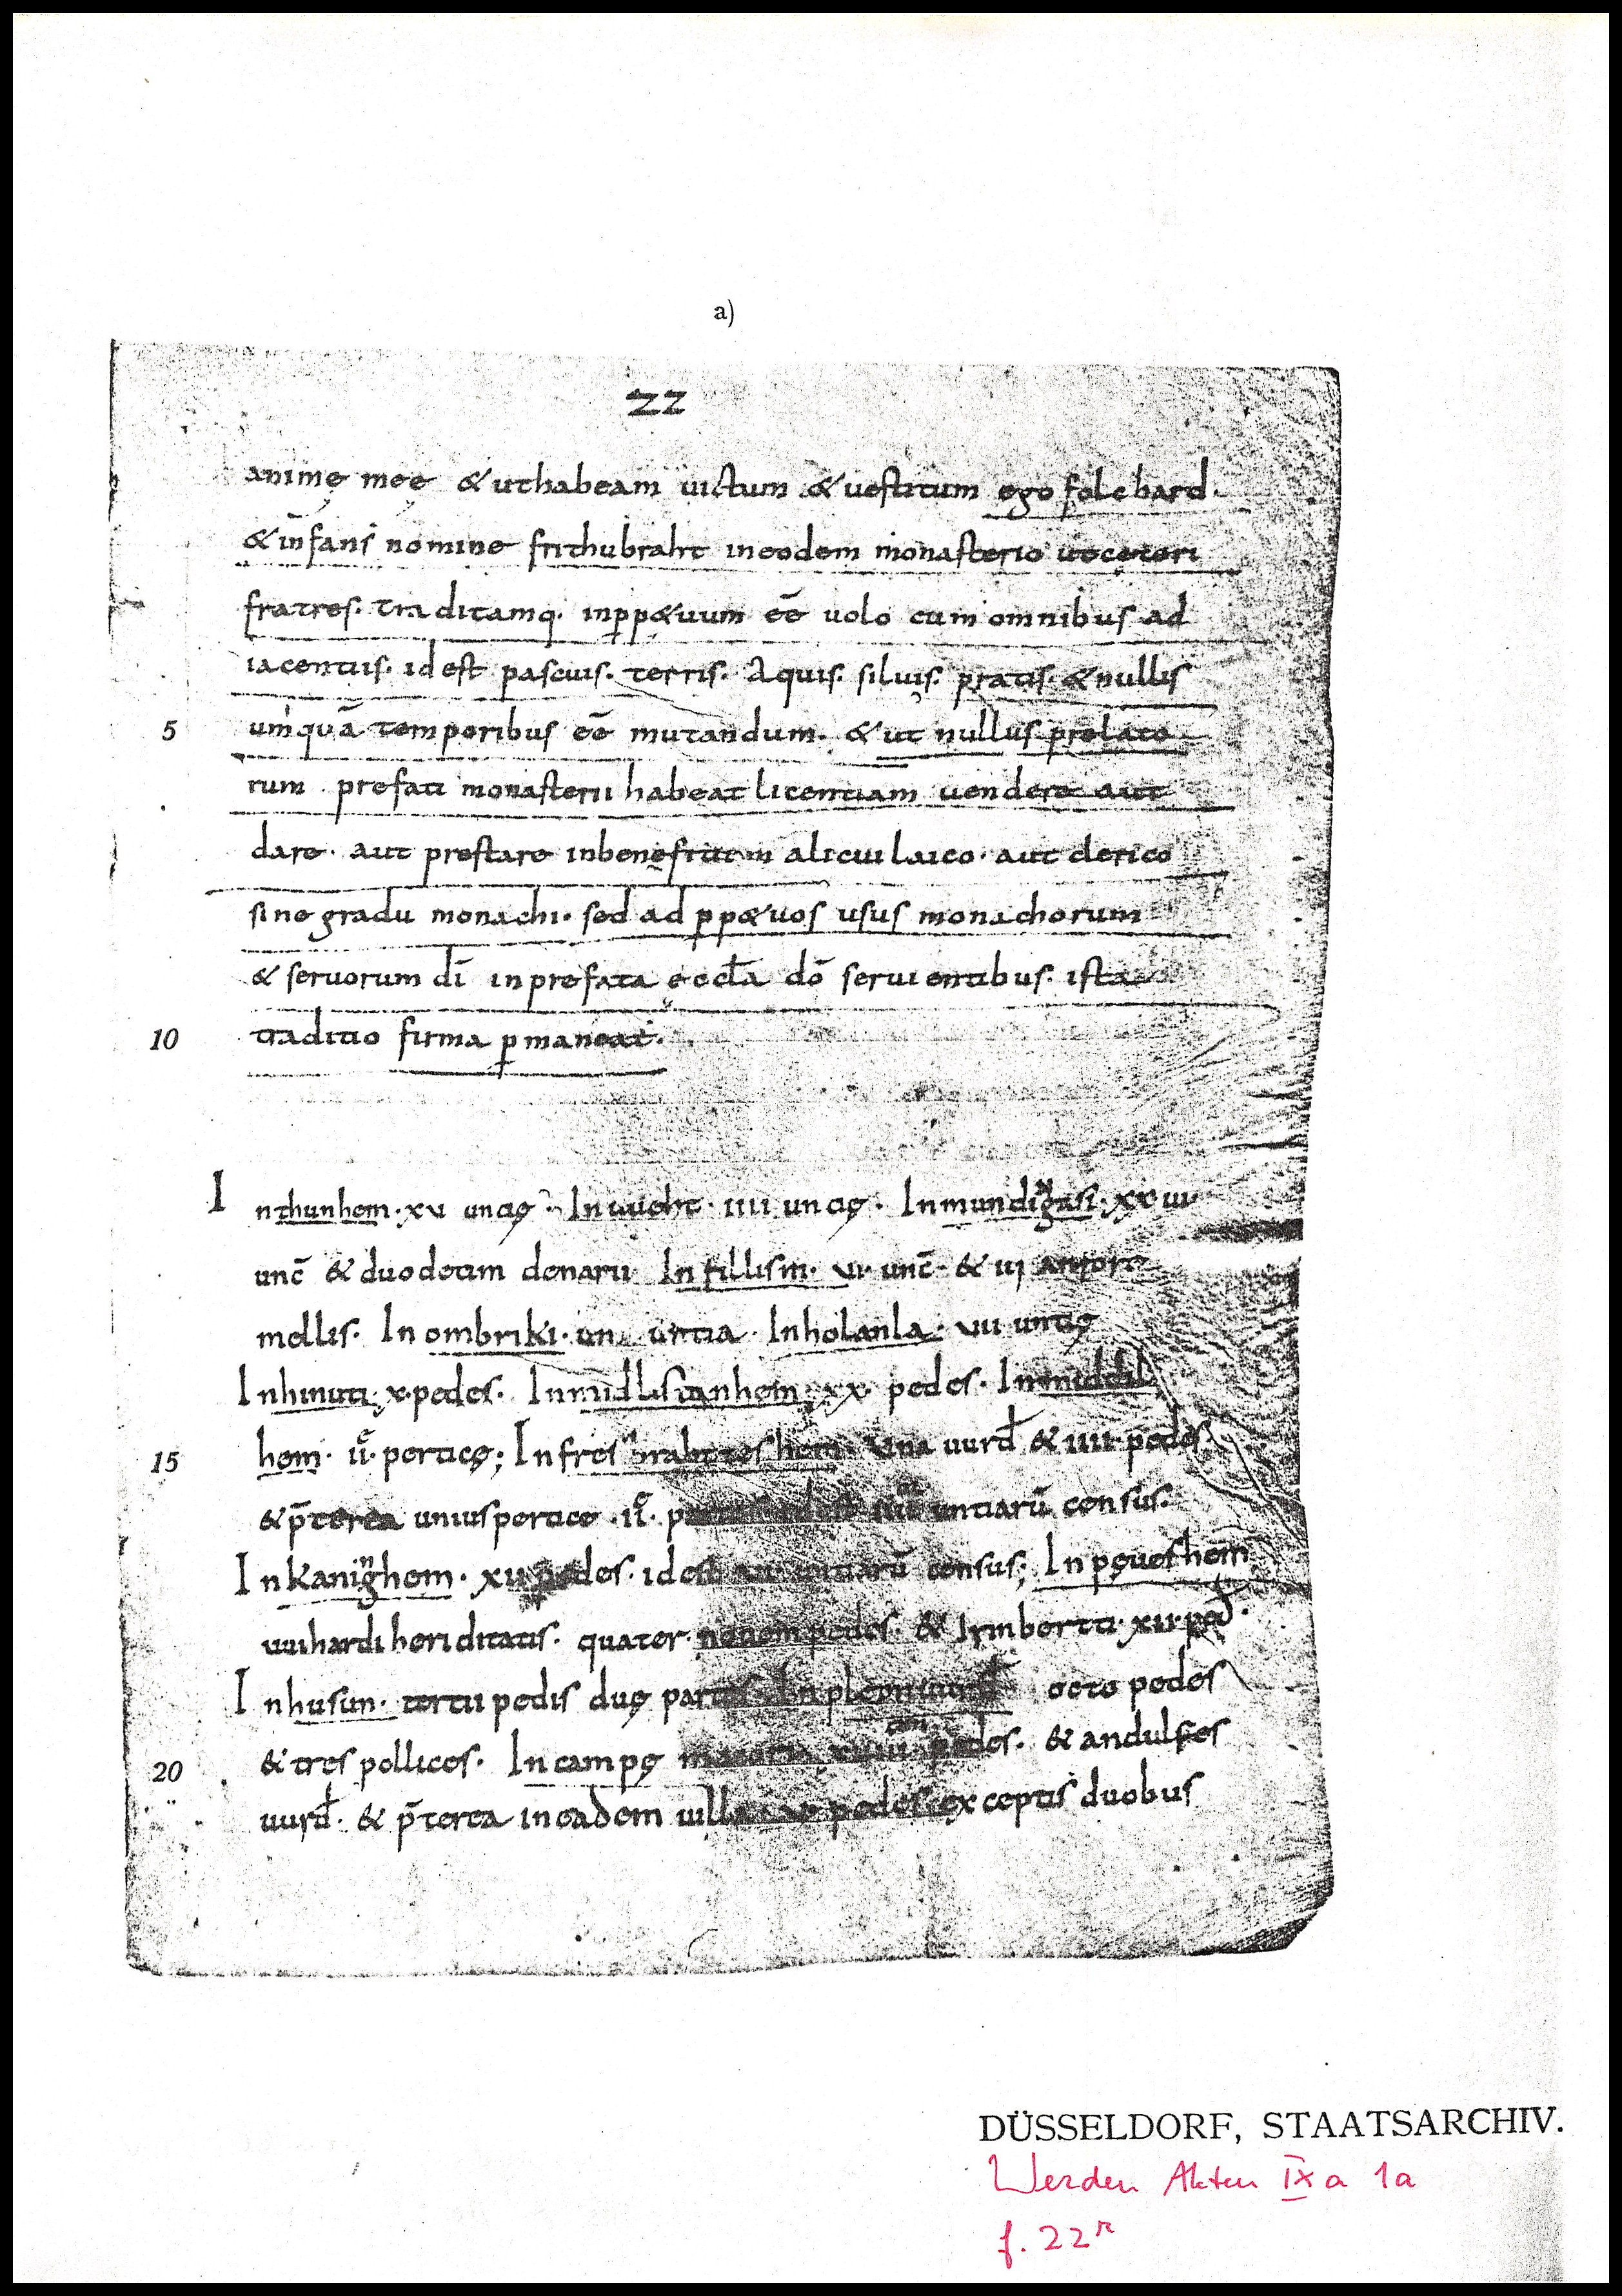 a)
22
animę meę & ut habeam uictum & uestitum ego folchard.
& infans nomine frithubraht in eodem monasterio ut cęteri
fratres. traditamq. in ppetuum eē uolo cum omnibus ad
iacentiis. id est pascuis. terris. Aquis. siluis. pratis. & nullis
5 umquā temporibus eē mutandum. & ut nullus prelato
rum prefati monasterii habeat licentiam uendere aut
dare. aut prestare in beneficium alicui laico. aut clerico
sine gradu monachi. sed ad ppetuos usus monachorum
& seruorum dī in prefata ęccła dō seruientibus. ista
10 traditio firma pmaneat.
In thunhem. xv uncię. In uueht. iiii uncię. In mundingasi. xx
unc̄ & duodecim denarii. In fillism. vi. unc̄. & iii amforę
mellis. In ombriki. un uncia. In holanla. vii uncię
In hinuti. x. pedes. In midlistanhem. xx. pedes. In middil
15 hem. ii. perticę; In fres hem. Una uurđ & iiii. pedes.
& p̄terea unius pertice .ii. untiarū census.
In kaninghem. xii pedes. id est untiarū census; In pęueshem
uuihardi heriditatis. quater. nouem pedes. & Irmbertti. xii. peđ.
In husun. tertii pedis duę partes. In octo pedes
20 & tres pollices. In campę pedes. & andulfes
uurđ. & p̄terea in eadem uilla pedes exceptis duobus
DÜSSELDORF, STAATSARCHIV.
Werden Akten IX a 1a
f. 22r